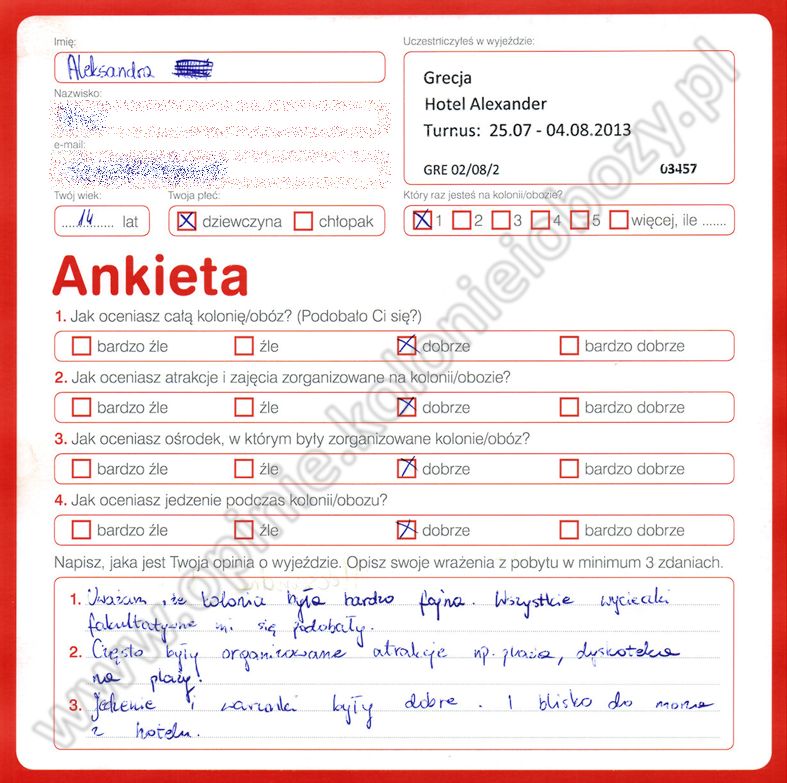 Imię:
Aleksandra
Uczestniczyłeś w wyjeździe:
Grecja
Hotel Alexander
Turnus: 25.07 - 04.08.2013
GRE 02/08/2 03457
Nazwisko:
e-mail:
Twój wiek:
14 lat
Twoja płeć:
dziewczyna chłopak
Który raz jesteś na kolonii/obozie?
1 2 3 4 5 więcej, ile .......
Ankieta
1. Jak oceniasz całą kolonię/obóz? (Podobało Ci się?)
bardzo źle źle dobrze bardzo dobrze
2. Jak oceniasz atrakcje i zajęcia zorganizowane na kolonii/obozie?
bardzo źle źle dobrze bardzo dobrze
3. Jak oceniasz ośrodek, w którym były zorganizowane kolonie/obóz?
bardzo źle źle dobrze bardzo dobrze
4. Jak oceniasz jedzenie podczas kolonii/obozu?
bardzo źle źle dobrze bardzo dobrze
Napisz, jaka jest Twoja opinia o wyjeździe. Opisz swoje wrażenia z pobytu w minimum 3 zdaniach.
1. Uważam, że kolonia była bardzo fajna. Wszystkie wycieczki
fakultatywne mi się podobały.
2. Często były organizowane atrakcje np. plaża, dyskoteka
na plaży!
3. Jedzenie i warunki były dobre. I blisko do morza
z hotelu.
www.opinie.kolonieiobozy.pl